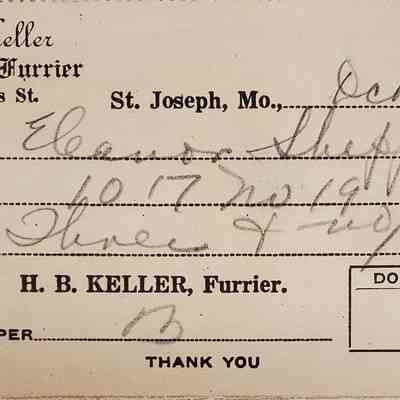 Keller
Furrier
s St.
St. Joseph, Mo., Oct
Eleanor Shepp
1017 No 19
Three & no/
H. B. KELLER, Furrier.
DO
PER B
THANK YOU